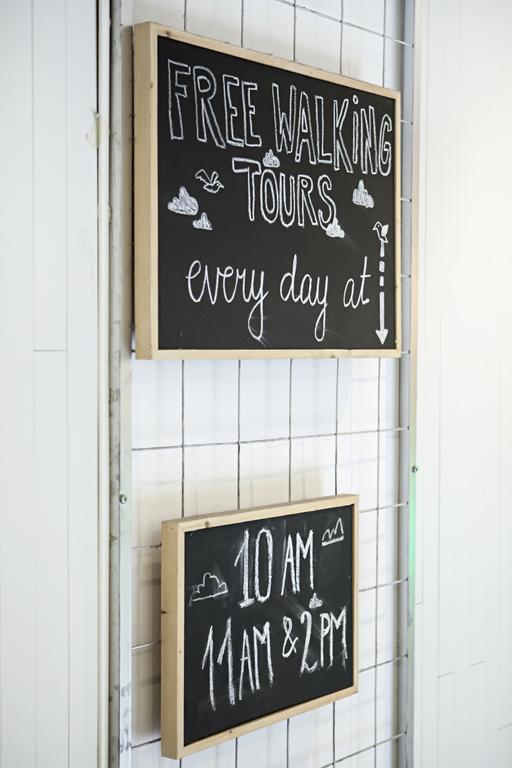 FREE WALKiNG
TOURS
every day at
10 AM
11AM & 2PM